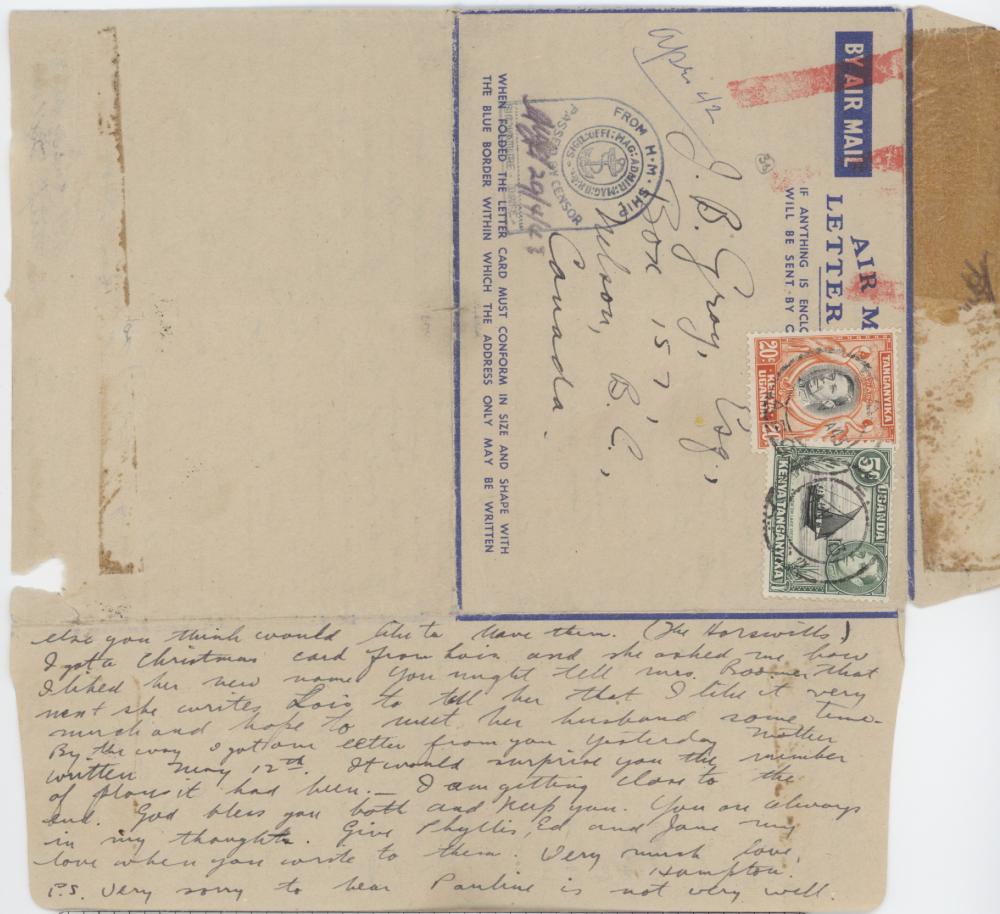 BY AIR MAIL
AIR M
LETTER
IF ANYTHING IS ENCLO
WILL BE SENT BY
April 42
J. B. Gray, Esq.,
Box 157,
Nelson, B.C.,
Canada.
FROM H.M. SHIP
PASSED BY CENSOR
29/4/43
WHEN FOLDED THE LETTER CARD MUST CONFORM IN SIZE AND SHAPE WITH
THE BLUE BORDER WITHIN WHICH THE ADDRESS ONLY MAY BE WRITTEN
TANGANYIKA
20c KENYA 20
UGANDA
5c UGANDA
KENYA TANGANYIKA
else you think would like to have them. (The Horswills)
I got a Christmas card from Lois and she asked me how
I liked her new name. You might tell Mrs. Boomer that
next she writes Lois to tell her that I like it very
much and hope to meet her husband some time.
By the way I got one letter from you yesterday Mother
written May 12th. It would surprise you the number
of places it had been. — I am getting close to the
end. God bless you both and keep you. You are always
in my thoughts. Give Phyllis, Ed and Jane my
love when you write to them. Very much love,
Hampton.
P.S. Very sorry to hear Pauline is not very well.